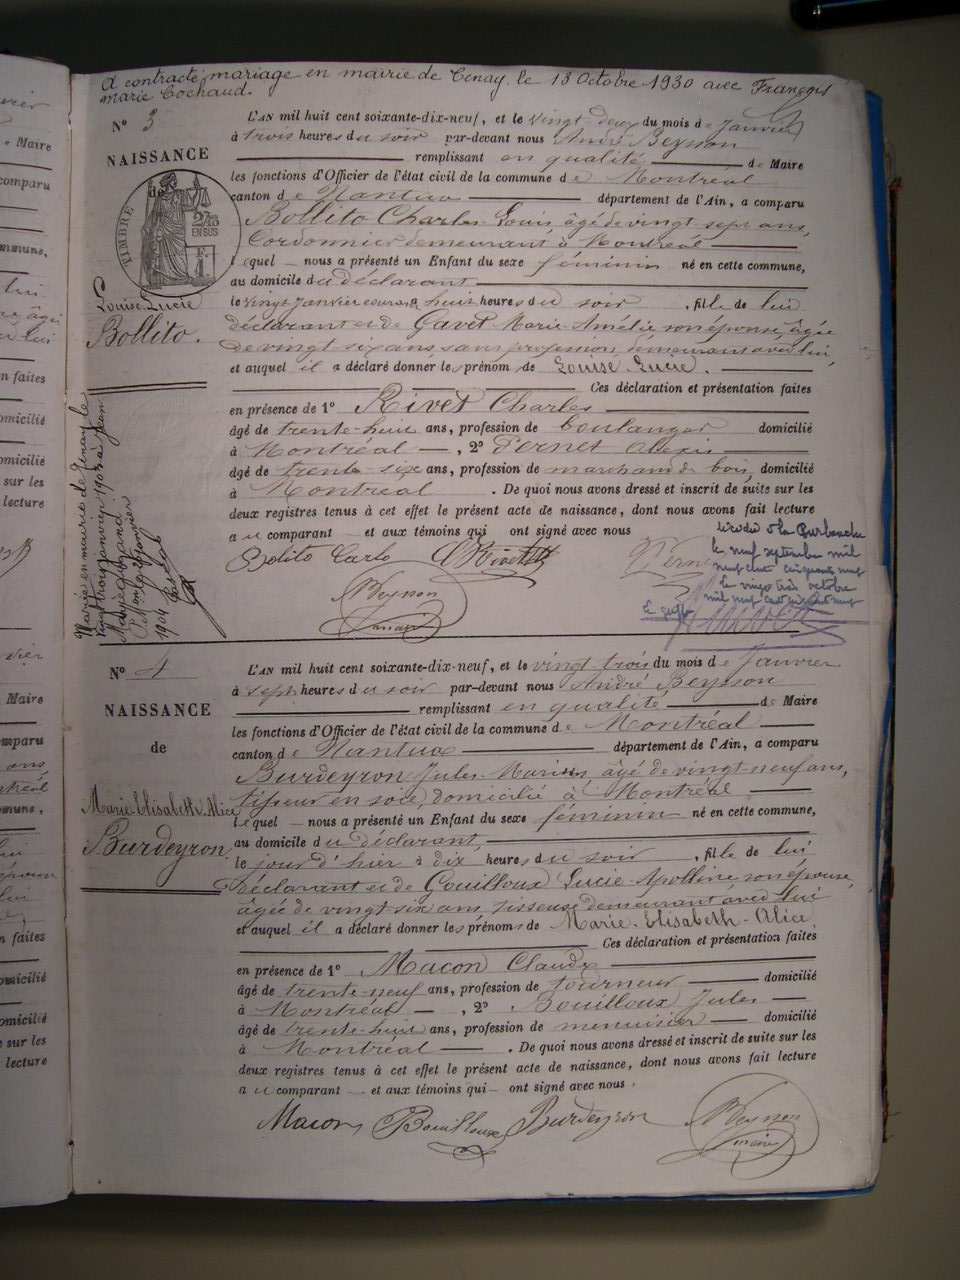 A contracté mariage en mairie de Tenay le 13 Octobre 1930 avec François
Marie Cochaud.
N° 3
NAISSANCE
de
TIMBRE
2/10
EN SUS
Louise Lucie
Bollito.
L'AN mil huit cent soixante-dix-neuf, et le vingt deux du mois de Janvier
à trois heures du soir par-devant nous André Beysson
remplissant en qualité de Maire
les fonctions d'Officier de l'état civil de la commune de Montréal
canton de Nantua département de l'Ain, a comparu
Bollito Charles Louis, âgé de vingt-sept ans,
Cordonnier demeurant à Montréal
lequel nous a présenté un Enfant du sexe féminin né en cette commune,
au domicile du déclarant
le vingt Janvier courant à huit heures du soir, fille de lui
déclarant et de Gavet Marie-Amélie son épouse, âgée
de vingt six ans, sans profession, demeurant avec lui,
et auquel il a déclaré donner les prénom de Louise-Lucie.
Ces déclaration et présentation faites
en présence de 1° Rivet Charles
âgé de trente-huit ans, profession de boulanger domicilié
à Montréal, 2° Pernet Alexis
âgé de trente-six ans, profession de marchand de bois, domicilié
à Montréal. De quoi nous avons dressé et inscrit de suite sur les
deux registres tenus à cet effet le présent acte de naissance, dont nous avons fait lecture
au comparant et aux témoins qui ont signé avec nous
Bolito Carlo
Beysson
maire
Mariée en mairie de Tenay le
1904
le neuf septembre mil
neuf cent cinquante neuf
le vingt trois octobre
mil neuf cent cinquante neuf
N° 4
NAISSANCE
de
Marie-Elisabeth-Alice
Burdeyron
L'AN mil huit cent soixante-dix-neuf, et le vingt trois du mois de Janvier
à sept heures du soir par-devant nous André Beysson
remplissant en qualité de Maire
les fonctions d'Officier de l'état civil de la commune de Montréal
canton de Nantua département de l'Ain, a comparu
Burdeyron Jules-Marius, âgé de vingt-neuf ans,
tisseur en soie, domicilié à Montréal
lequel nous a présenté un Enfant du sexe féminin né en cette commune,
au domicile du déclarant,
le jour d'hier à dix heures du soir, fille de lui
déclarant et de Gouilloux Lucie-Apolline son épouse,
âgée de vingt-six ans, tisseuse demeurant avec lui
et auquel il a déclaré donner les prénoms de Marie-Elisabeth-Alice
Ces déclaration et présentation faites
en présence de 1° Macon Claude
âgé de trente-neuf ans, profession de tourneur domicilié
à Montréal, 2° Bouilloux Jules
âgé de trente-huit ans, profession de menuisier domicilié
à Montréal. De quoi nous avons dressé et inscrit de suite sur les
deux registres tenus à cet effet le présent acte de naissance, dont nous avons fait lecture
au comparant et aux témoins qui ont signé avec nous.
Macon Bouilloux Burdeyron Beysson
maire